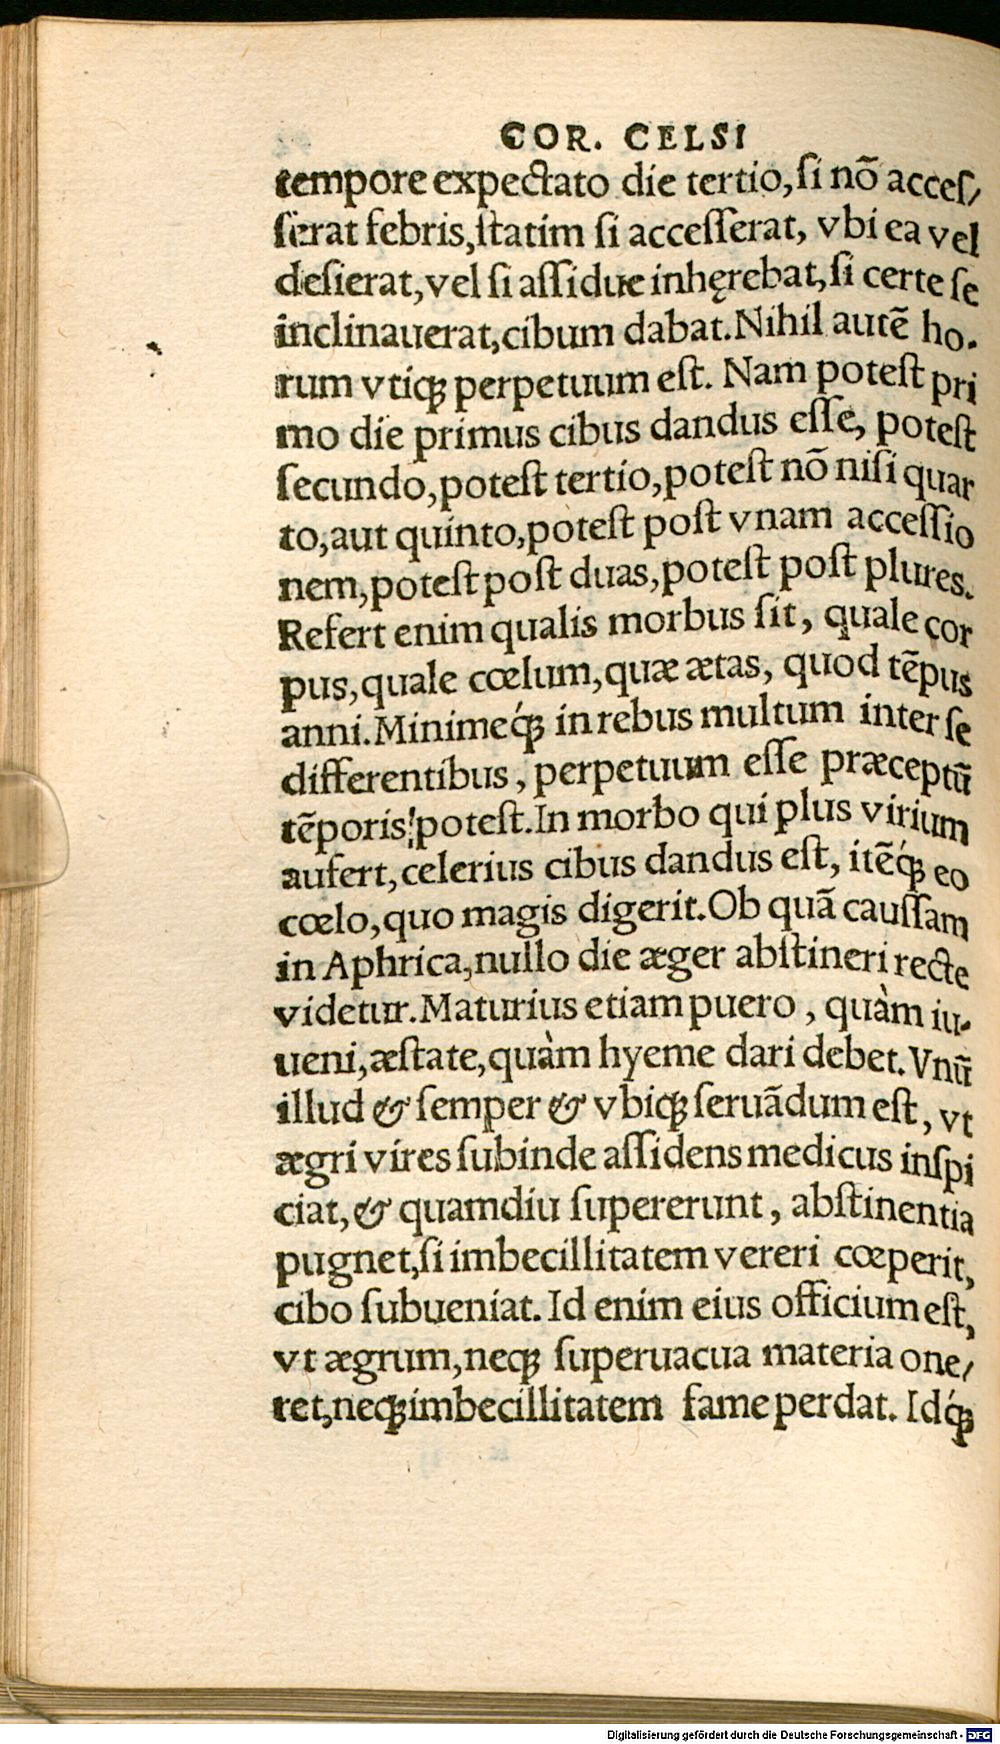 COR. CELSI
tempore expectato die tertio, ſi nõ acceſ/
ſerat febris, ſtatim ſi acceſſerat, vbi ea vel
deſierat, vel ſi aſſidue inhęrebat, ſi certe ſe
inclinauerat, cibum dabat. Nihil autẽ ho-
rum vtiqꝫ perpetuum eſt. Nam poteſt pri
mo die primus cibus dandus eſſe, poteſt
ſecundo, poteſt tertio, poteſt nõ niſi quar
to, aut quinto, poteſt poſt vnam acceſſio
nem, poteſt poſt duas, poteſt poſt plures.
Refert enim qualis morbus ſit, quale cor
pus, quale cœlum, quæ ætas, quod tẽpus
anni. Minimeq́ꝫ in rebus multum inter ſe
differentibus, perpetuum eſſe præceptũ
tẽporis poteſt. In morbo qui plus virium
aufert, celerius cibus dandus eſt, itẽq́ꝫ eo
cœlo, quo magis digerit. Ob quã cauſſam
in Aphrica, nullo die æger abſtineri recte
videtur. Maturius etiam puero, quàm iu-
ueni, æſtate, quàm hyeme dari debet. Vnũ
illud & ſemper & vbiqꝫ ſeruãdum eſt, vt
ægri vires ſubinde aſſidens medicus inſpi
ciat, & quamdiu ſupererunt, abſtinentia
pugnet, ſi imbecillitatem vereri cœperit,
cibo ſubueniat. Id enim eius officium eſt,
vt ægrum, neqꝫ ſuperuacua materia one/
ret, neqꝫ imbecillitatem fame perdat. Idq́ꝫ
Digitalisierung gefördert durch die Deutsche Forschungsgemeinschaft - DFG